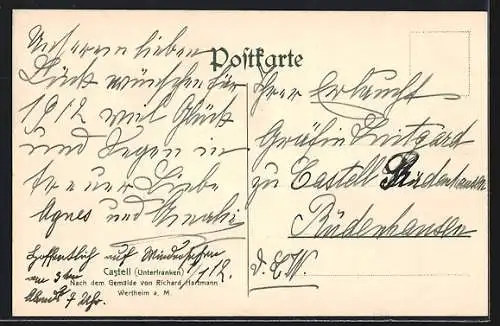 Postkarte
Unserem lieben
Luck wünschen für
1912 viel Glück
und Segen in
treuer Liebe
Agnes und
Hoffentlich auf Wiedersehen
am 3ten
Abends 7 Uhr. 1/1 12.
Ihrer Erlaucht
Gräfin Luitgard
zu Castell Rüdenhausen
Rüdenhausen
d. E. W.
Castell (Unterfranken)
Nach dem Gemälde von Richard Hartmann
Wertheim a. M.